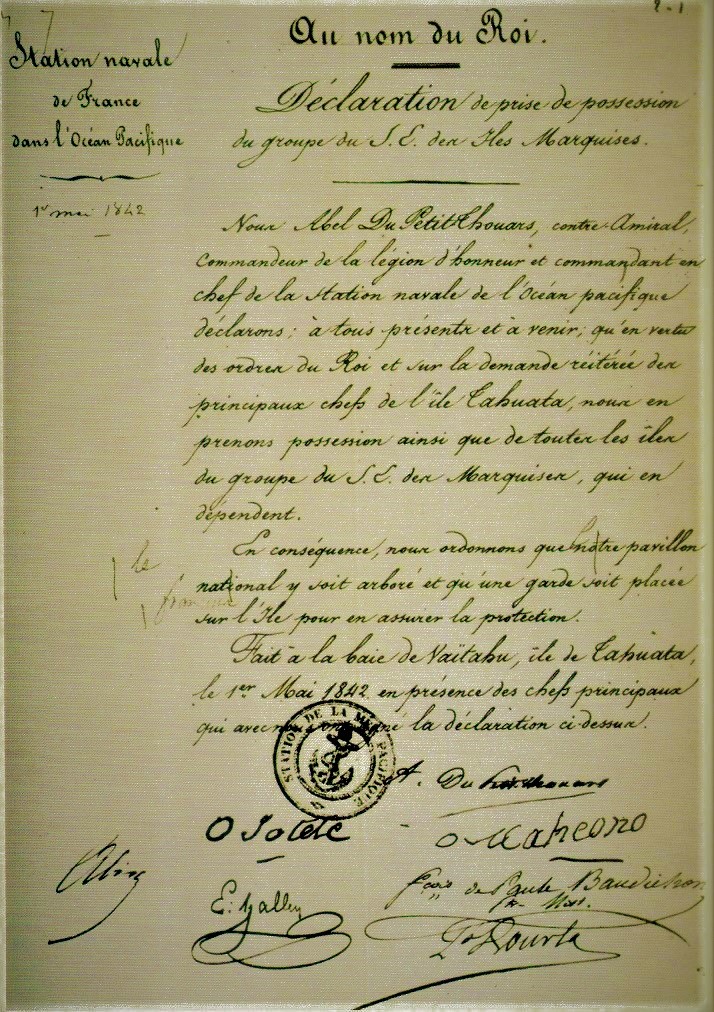 2-1
Au nom du Roi.
Station navale
de France
dans l'Océan Pacifique
1er mai 1842
Déclaration de prise de possession
du groupe du S. E. des Iles Marquises.
Nous Abel Du Petit Thouars, contre-Amiral,
Commandeur de la légion d'honneur et commandant en
chef de la station navale de l'Océan pacifique
déclarons; à tous présents et à venir, qu'en vertu
des ordres du Roi et sur la demande réitérée des
principaux chefs de l'île Tahuata, nous en
prenons possession ainsi que de toutes les îles
du groupe du S. E. des Marquises, qui en
dépendent.
En conséquence, nous ordonnons que notre pavillon
le
national y soit arboré et qu'une garde soit placée
français
sur l'Ile pour en assurer la protection.
Fait à la baie de Vaïtahu, île de Tahuata,
le 1er Mai 1842 en présence des chefs principaux
qui avec la déclaration ci-dessus.
STATION DE LA MER PACIFIQUE
A. Du Petit Thouars
O Iotete
O Maheono
E. Halley
fçois de Paule Baudichon